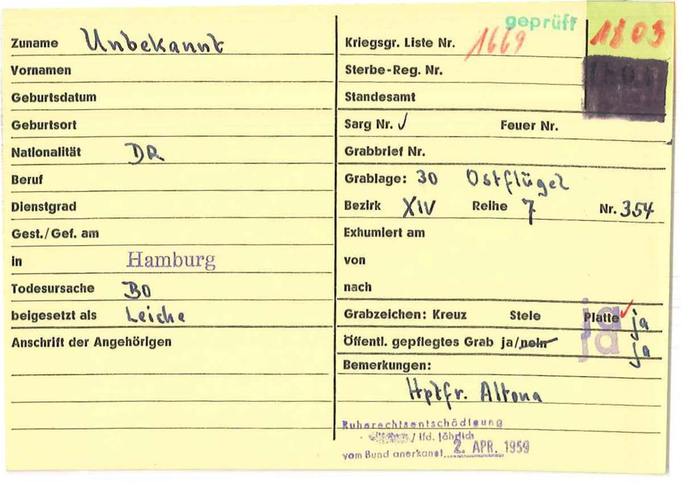 Zuname Unbekannt
Vornamen
Geburtsdatum
Geburtsort
Nationalität DR
Beruf
Dienstgrad
Gest./Gef. am
in Hamburg
Todesursache BO
beigesetzt als Leiche
Anschrift der Angehörigen
geprüft
1803
Kriegsgr. Liste Nr. 1669
Sterbe-Reg. Nr.
Standesamt
Sarg Nr. √ Feuer Nr.
Grabbrief Nr.
Grablage: 30 Ostflügel
Bezirk XIV Reihe 7 Nr. 354
Exhumiert am
von
nach
Grabzeichen: Kreuz Stele Platte ja ja
Öffentl. gepflegtes Grab ja/nein ja ja
Bemerkungen:
Hptfr. Altona
Ruherechtsentschädigung
/ lfd. jährlich
vom Bund anerkannt 2. APR. 1959